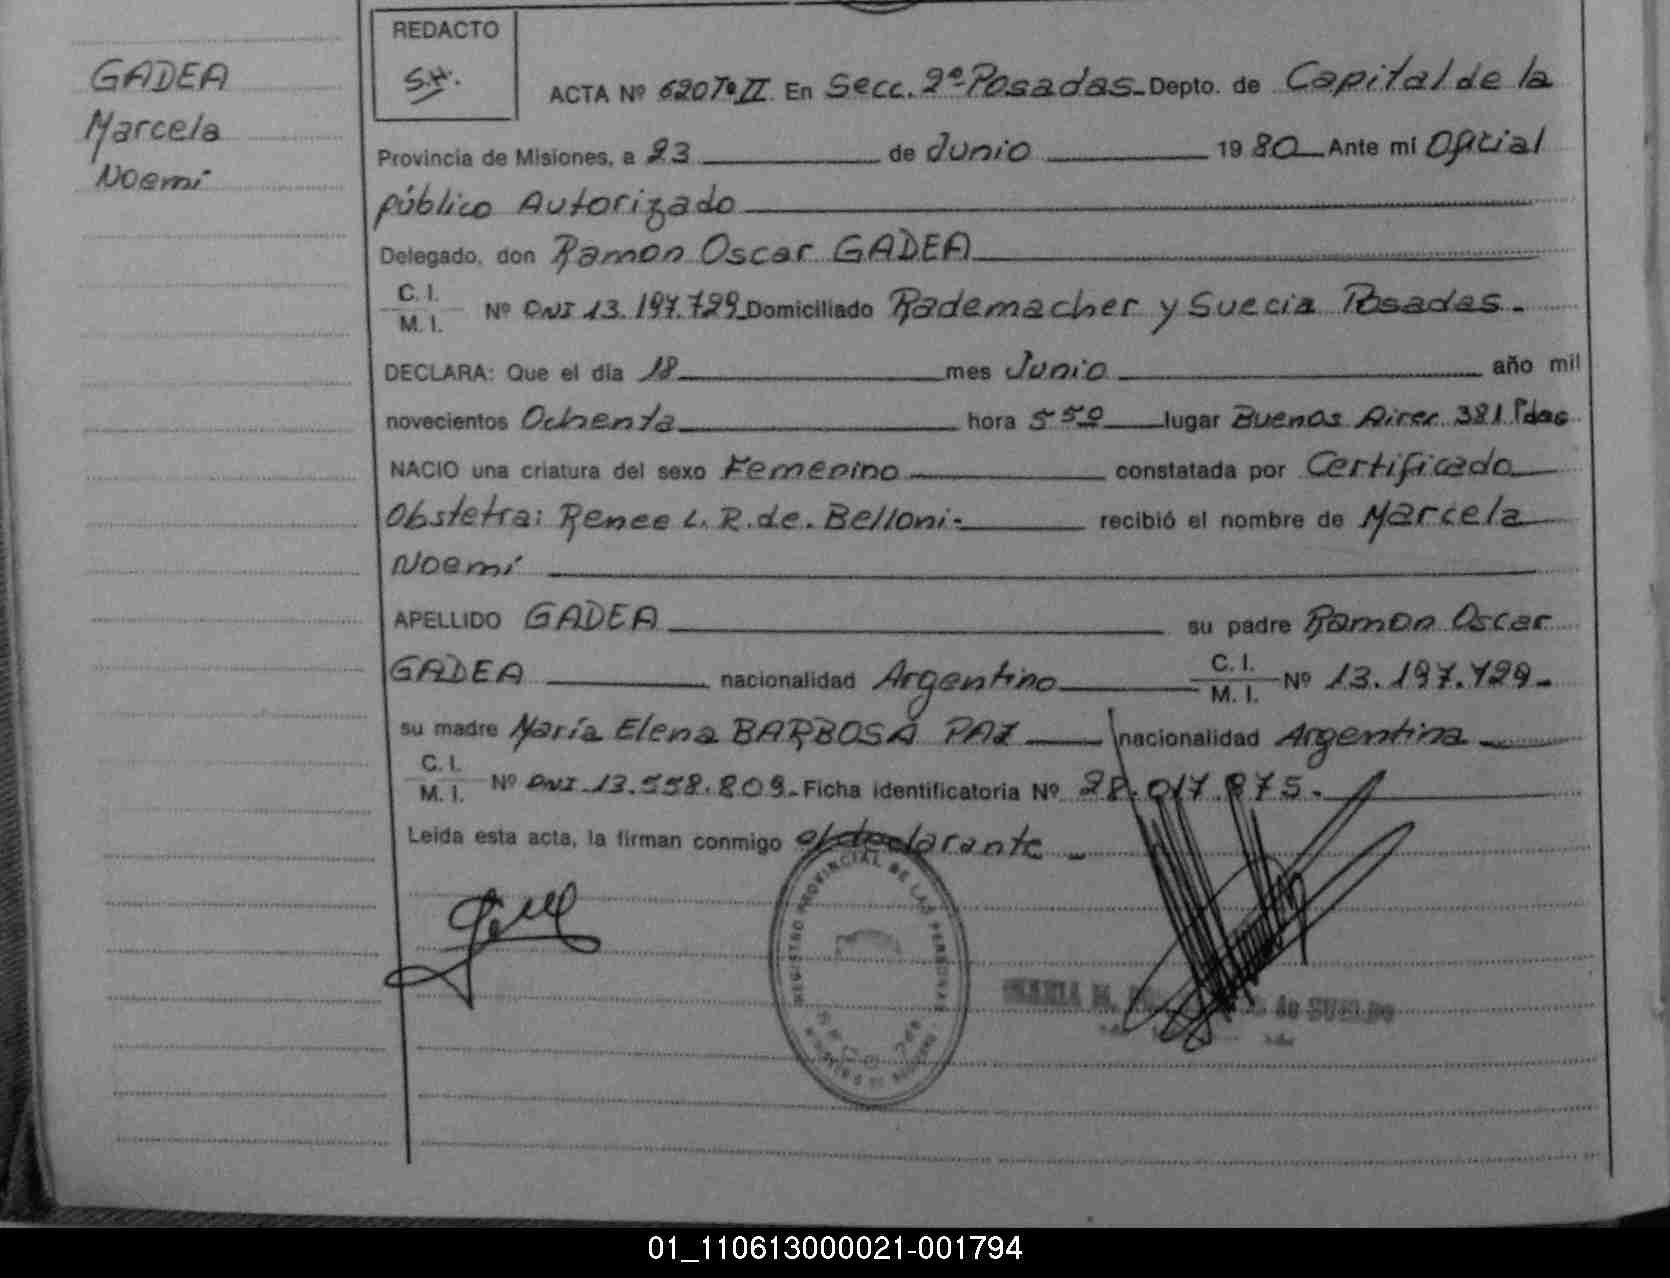 GADEA
Marcela
Noemí
REDACTO
S.H.
ACTA Nº 620 Tº II En Secc. 2ª Posadas Depto. de Capital de la
Provincia de Misiones, a 23 de Junio 19 80 Ante mi Oficial
público Autorizado
Delegado, don Ramon Oscar GADEA
C. I.
M. I. Nº DNI 13.197.729 Domiciliado Rademacher y Suecia Posadas.
DECLARA: Que el día 18 mes Junio año mil
novecientos Ochenta hora 5 50 lugar Buenos Aires 381 Pdas
NACIO una criatura del sexo Femenino constatada por Certificado
Obstetra: Renee L. R. de. Belloni- recibió el nombre de Marcela
Noemí
APELLIDO GADEA su padre Ramon Oscar
GADEA nacionalidad Argentino C. I.
M. I. Nº 13.197.729-
su madre María Elena BARBOSA PAZ nacionalidad Argentina
C. I.
M. I. Nº DNI 13.558.809- Ficha identificatoria Nº 28.017.875.
Leida esta acta, la firman conmigo el declarante
REGISTRO PROVINCIAL DE LAS PERSONAS
MARIA M. de SUELDO
01_110613000021-001794